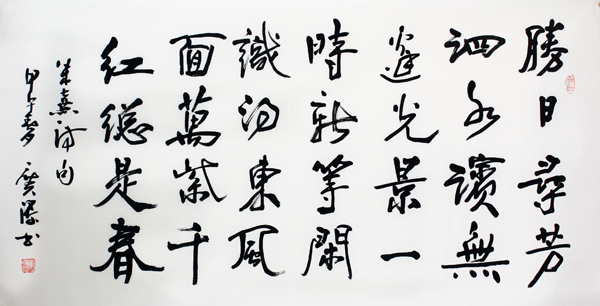 勝日尋芳
泗水濱無
邊光景一
時新等閑
識得東風
面萬紫千
紅總是春
朱熹詩句
甲午春 書